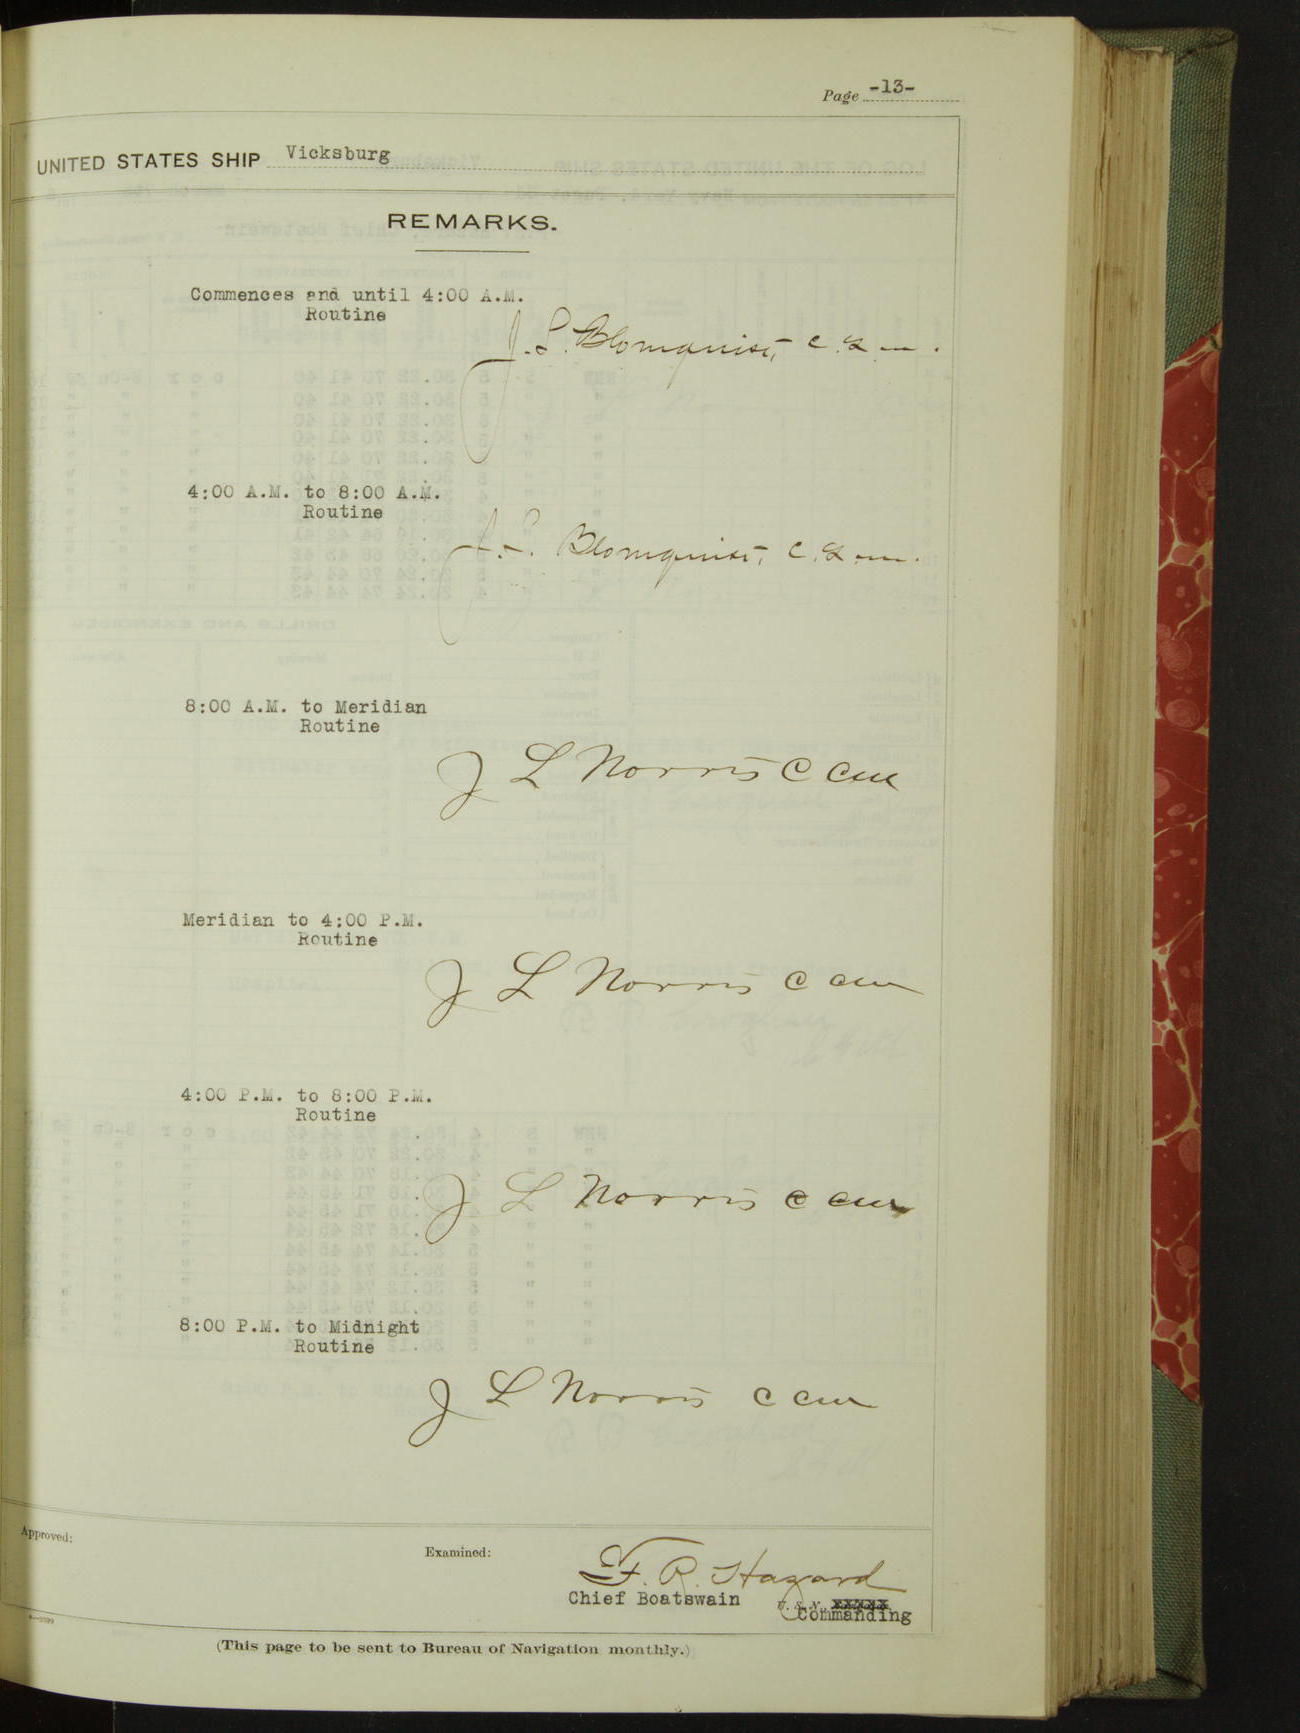 Page -13-
UNITED STATES SHIP Vicksburg
REMARKS.
Commences and until 4:00 A.M.
Routine
J. L. Blomquist, C. G. M.
4:00 A.M. to 8:00 A.M.
Routine
J. L. Blomquist, C. G. M.
8:00 A.M. to Meridian
Routine
J L Norris C CM
Meridian to 4:00 P.M.
Routine
J L Norris C CM
4:00 P.M. to 8:00 P.M.
Routine
J L Norris C CM
8:00 P.M. to Midnight
Routine
J L Norris C CM
Approved:
Examined:
F. R. Hazard
Chief Boatswain U. S. N.
Commanding
(This page to be sent to Bureau of Navigation monthly.)